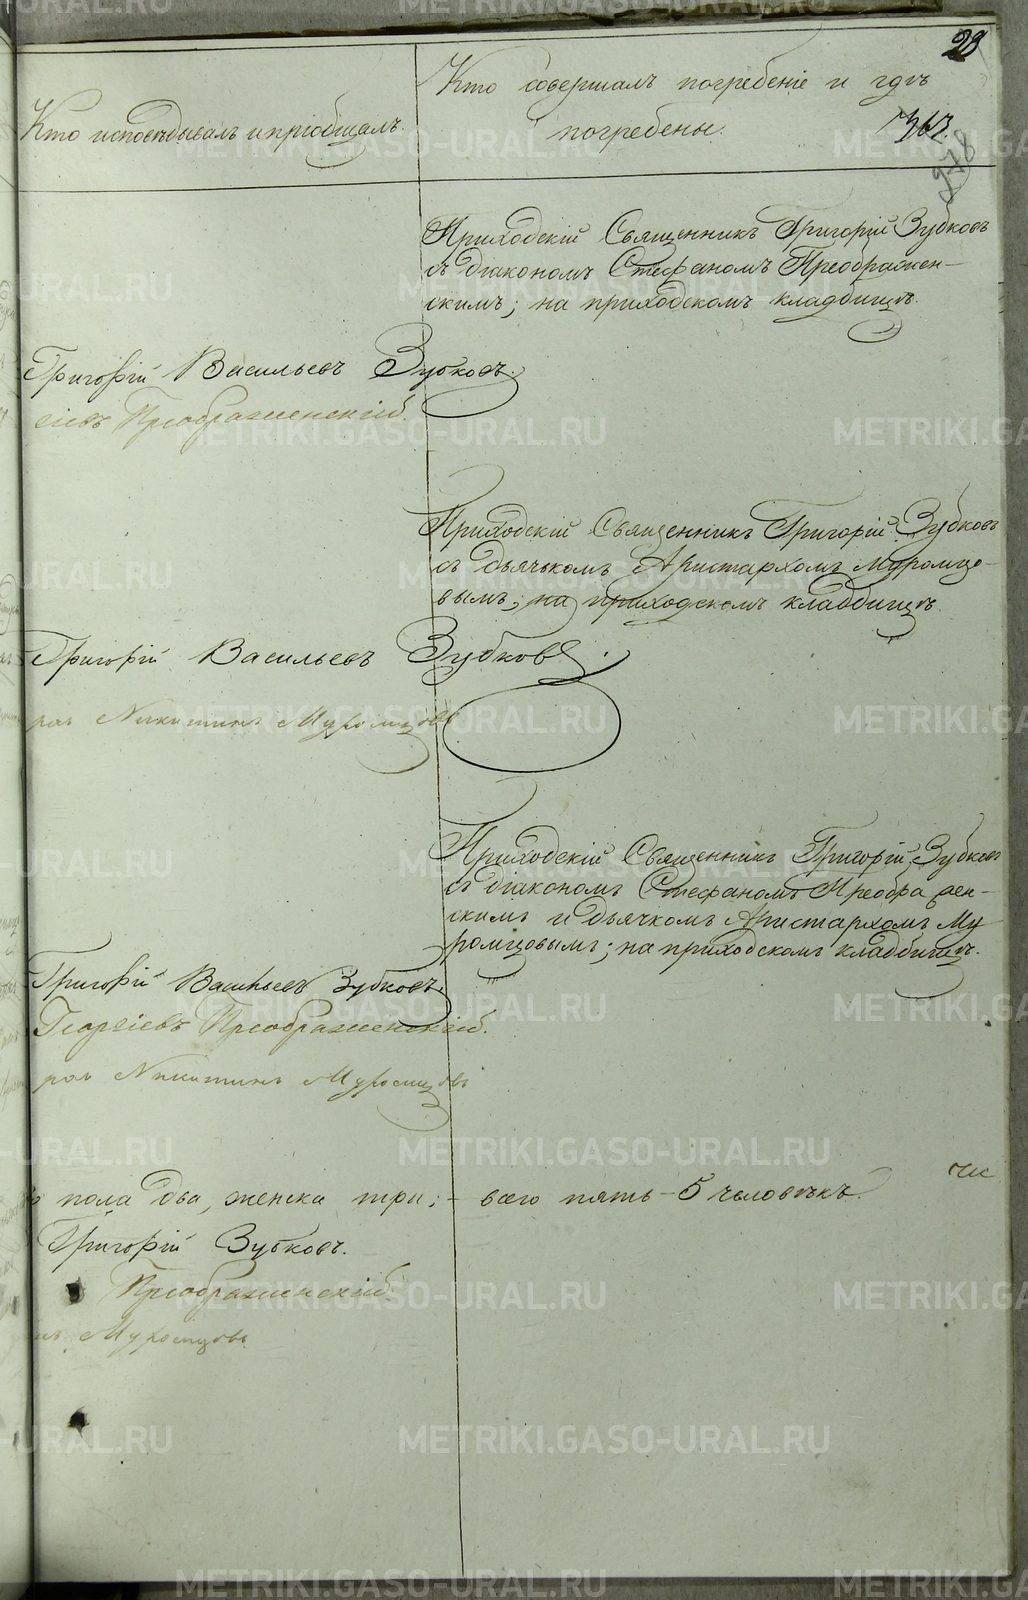 28
Кто исповѣдывалъ и пріобщалъ.
Кто совершалъ погребеніе и гдѣ
погребены.
367.
278
Приходскій Священникъ Григорій Зубковъ
съ діакономъ Стефаномъ Преображен-
скимъ; на приходскомъ кладбищѣ.
Григорій Васильевъ Зубковъ.
гіевъ Преображенскій
Приходскій Священникъ Григорій Зубковъ
съ дьячькомъ Аристархомъ Муромцо-
вымъ; на приходскомъ кладбищѣ.
Григорій Васильевъ Зубковъ.
рхъ Никитинъ Муромцовъ
Приходскій Священникъ Григорій Зубковъ
съ діакономъ Стефаномъ Преображен-
скимъ и дьячкомъ Аристархомъ Му
ромцовымъ; на приходскомъ кладбищѣ.
Григорій Васильевъ Зубковъ.
Георгіевъ Преображенскій.
рхъ Никитинъ Муромцовъ
пола два, женска три; - всего пять - 5 человѣкъ.
Григорій Зубковъ.
Преображенскій
нъ Муромцовъ
METRIKI.GASO-URAL.RU